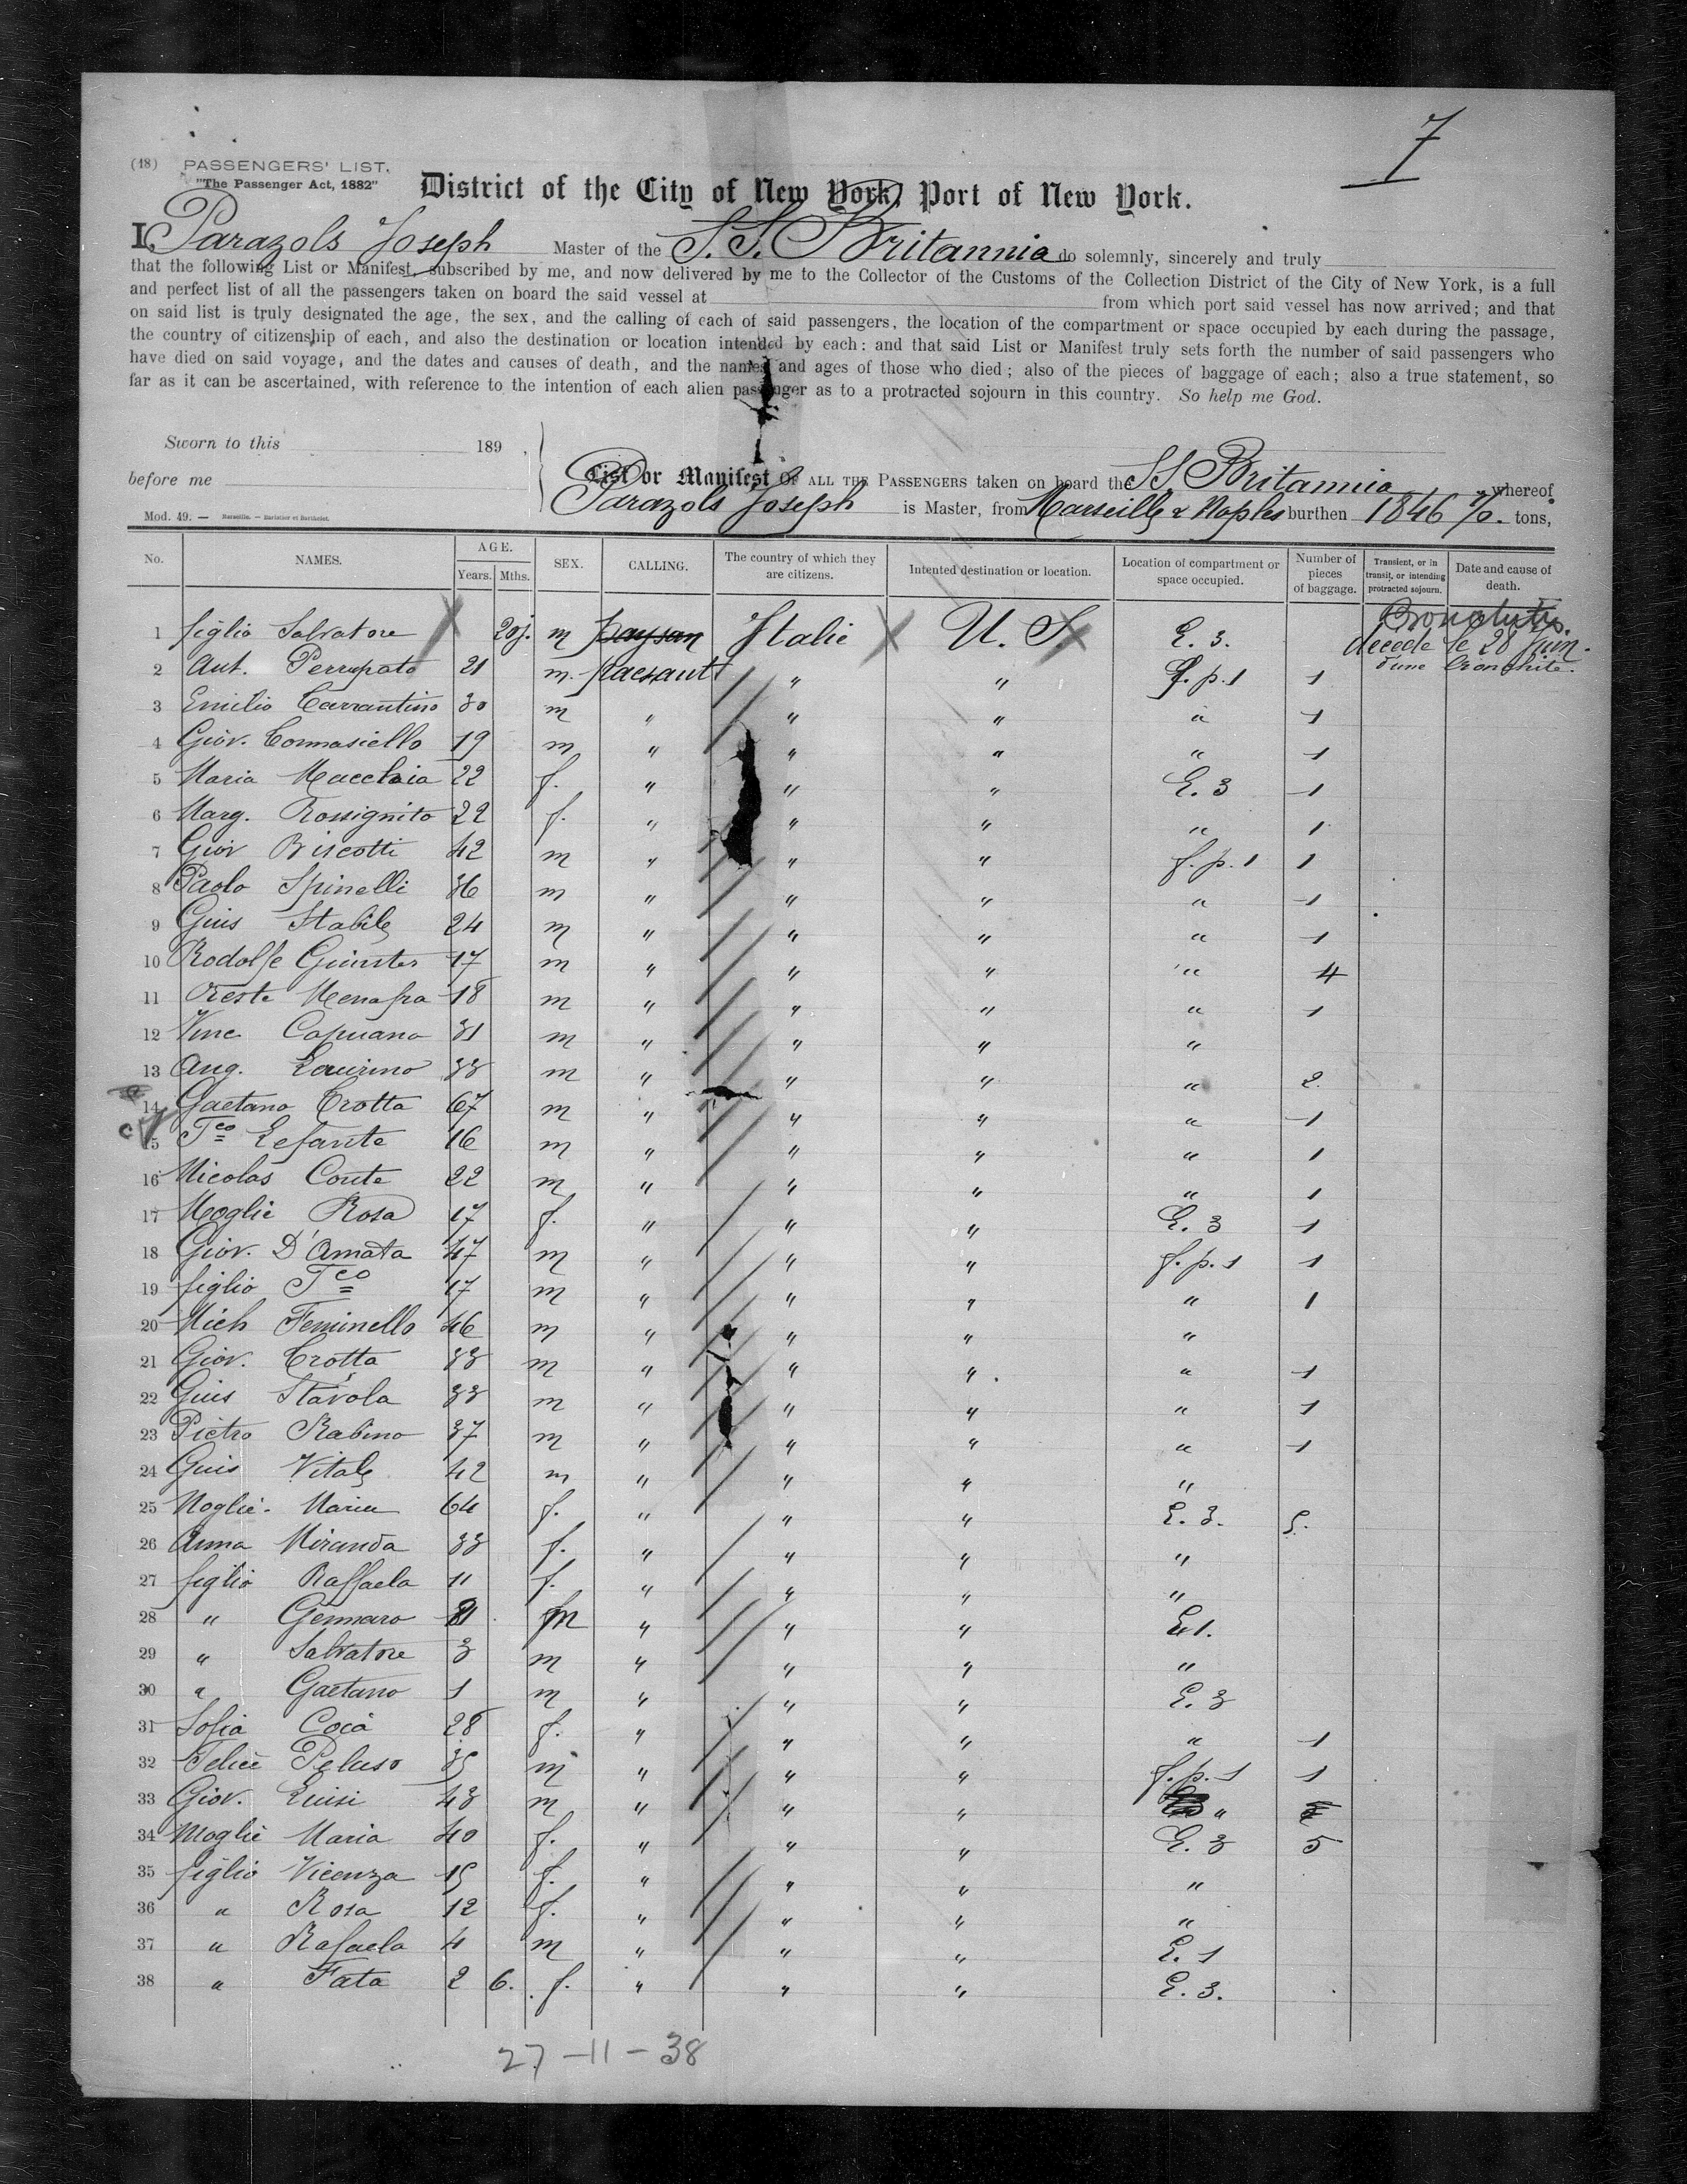 7
(18) PASSENGERS' LIST.
"The Passenger Act, 1882"
District of the City of New York, Port of New York.
I, Parazols Joseph Master of the S.S. Britannia do solemnly, sincerely and truly
that the following List or Manifest, subscribed by me, and now delivered by me to the Collector of the Customs of the Collection District of the City of New York, is a full
and perfect list of all the passengers taken on board the said vessel at from which port said vessel has now arrived; and that
on said list is truly designated the age, the sex, and the calling of each of said passengers, the location of the compartment or space occupied by each during the passage,
the country of citizenship of each, and also the destination or location intended by each: and that said List or Manifest truly sets forth the number of said passengers who
have died on said voyage, and the dates and causes of death, and the names and ages of those who died; also of the pieces of baggage of each; also a true statement, so
far as it can be ascertained, with reference to the intention of each alien passenger as to a protracted sojourn in this country. So help me God.
Sworn to this 189 ,
before me
List or Manifest OF ALL THE PASSENGERS taken on board the SS Britannia whereof
Parazols Joseph is Master, from Marseille & Naples burthen 1846 %. tons,
Mod. 49. — Marseille. — Barlatier et Barthelet.
No. NAMES. AGE. Years. Mths. SEX. CALLING. The country of which they are citizens. Intented destination or location. Location of compartment or space occupied. Number of pieces of baggage. Transient, or in transit, or intending protracted sojourn. Date and cause of death.
1 figlio Salvatore 20j. m paysan Italie U. S. E. 3. décédé le 28 Juin. d'une bronchite.
2 Ant. Perrupato 21 m. " " f. p. 1 1
3 Emilio Carrantino 30 m " " " " 1
4 Giov. Tomasiello 19 m " " " " 1
5 Maria Macchia 22 f. " " " E. 3 1
6 Marg. Rossignito 22 f. " " " " 1
7 Giov Biscotti 42 m " " " f. p. 1 1
8 Paolo Spinelli 36 m " " " " 1
9 Gius Stabile 24 m " " " " 1
10 Rodolfe 17 m " " " " 4
11 Oreste Menafra 18 m " " " " 1
12 Vinc Capuano 31 m " " " "
13 Ang. Laurino 33 m " " " " 2.
14 Gaetano Trotta 67 m " " " " 1
15 Fco Lefante 16 m " " " " 1
16 Nicolas Conte 22 m " " " " 1
17 Moglie Rosa 17 f. " " " E. 3 1
18 Giov. D'Amata 47 m " " " f. p. 1 1
19 figlio Fco 17 m " " " " 1
20 Mich Feminello 46 m " " " "
21 Giov. Trotta 33 m " " " " 1
22 Gius Stavola 33 m " " " " 1
23 Pietro Rabino 37 m " " " " 1
24 Gius Vitale 42 m " " " "
25 Moglie Maria 64 f. " " " E. 3. 5.
26 Anna Miranda 33 f. " " " "
27 figlio Raffaela 11 f. " " " "
28 " Gennaro m " " " E 1.
29 " Salvatore 3 m " " " "
30 " Gaetano 1 m " " " E. 3
31 Sofia Cocà 28 f. " " " " 1
32 Felice Peluso 35 m " " " f. p. 1 1
33 Giov. Luisi 48 m " " " "
34 Moglie Maria 40 f. " " " E. 3 5
35 figlio Vicenza 15 f. " " " "
36 " Rosa 12 f. " " " "
37 " Rafaela 4 m " " " E. 1
38 " Fata 2 6. f. " " " E. 3.
27-11-38